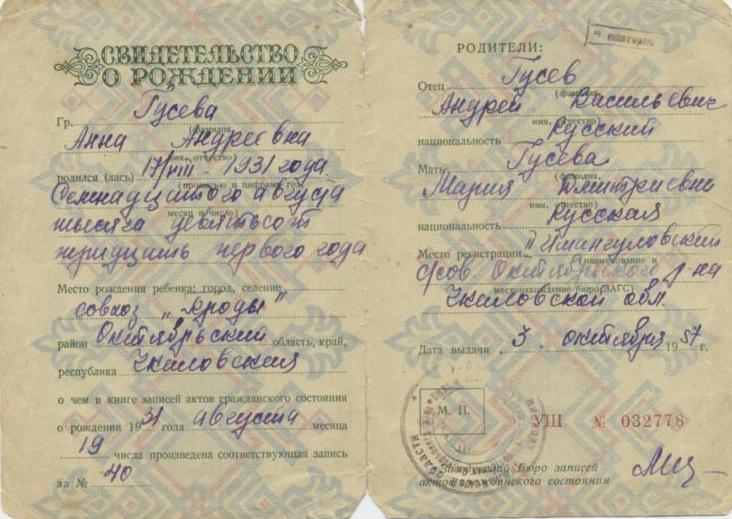 СВИДЕТЕЛЬСТВО
О РОЖДЕНИИ
Гр. Гусева
(фамилия,
Анна Андреевна
имя, отчество)
родился (лась) 17/VIII - 1931 года
(прописью и цифрами год,
Семнадцатого августа
месяц и число)
тысяча девятьсот
тридцать первого года
Место рождения ребенка: город, селение
совхоз
район Октябрьский область, край,
республика Чкаловская
о чем в книге записей актов гражданского состояния
о рождении 1931 года августа месяца
19 числа произведена соответствующая запись
за № 40
РОДИТЕЛИ:
Отец Гусев
(фамилия,
Андрей Васильевич
имя, отчество)
национальность русский
Мать Гусева
(фамилия,
Мария Дмитриевна
имя, отчество)
национальность русская
Место регистрации "Имангуловский
(наименование и
с/сов. Октябрьского р-на
местонахождение бюро ЗАГС)
Чкаловской обл.
Дата выдачи 3. октября 1957 г.
М. П.
УШ № 032776
Заведующий бюро записей
актов гражданского состояния